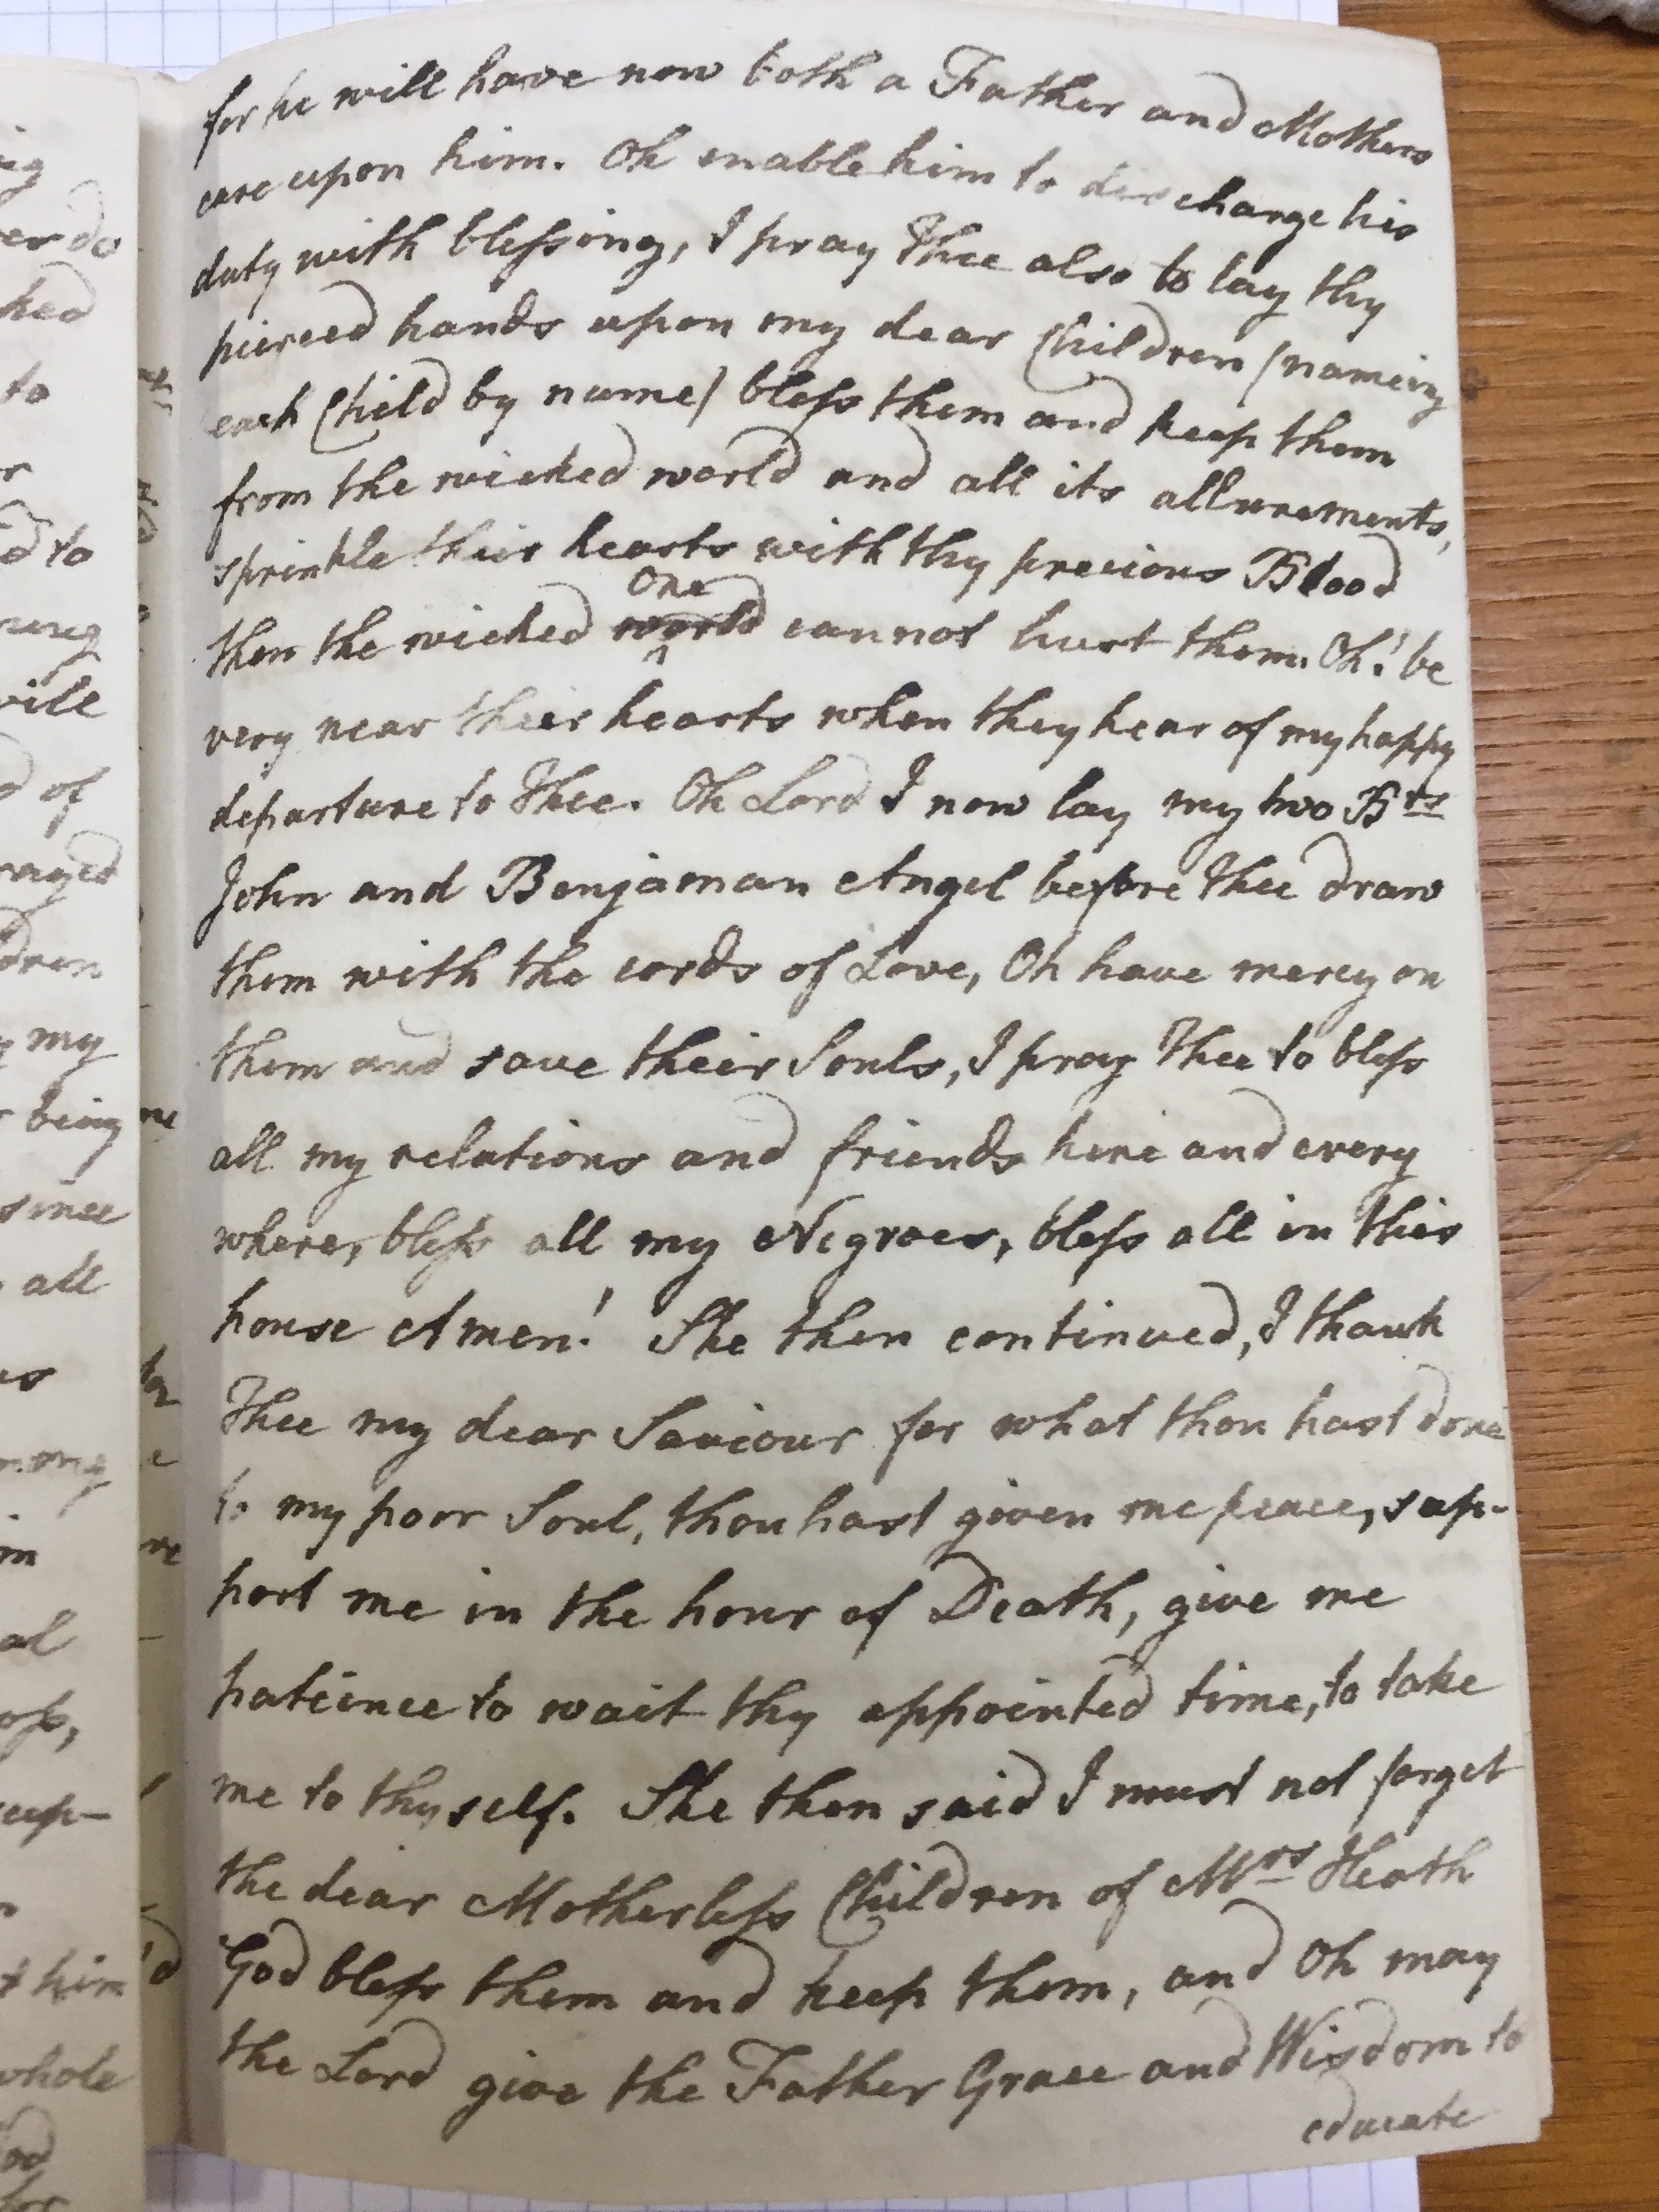 for he will have now both a Father and Mothers
care upon him. Oh enable him to discharge his
duty with blessing, I pray Thee also to lay thy
pierced hands upon my dear Children (nameing
each Child by name) bless them and keep them
from the wicked world and all its allurements,
sprinkle their hearts with thy precious Blood
One
then the wicked world cannot hurt them. Oh! be
very near their hearts when they hear of my happy
departure to Thee. Oh Lord I now lay my two Brs
John and Benjaman Angel before Thee draw
them with the cords of Love, Oh have mercy on
them and save their Souls, I pray Thee to bless
all my relations and friends here and every
where, bless all my Negroes, bless all in this
house Amen! She then continued, I thank
Thee my dear Saviour for what thou hast done
to my poor Soul, thou hast given me peace, sup-
port me in the hour of Death, give me
patience to wait thy appointed time, to take
me to thyself. She then said I must not forget
the dear Motherless Children of Mrs Heath
God bless them and keep them, and Oh may
the Lord give the Father Grace and Wisdom to
educate